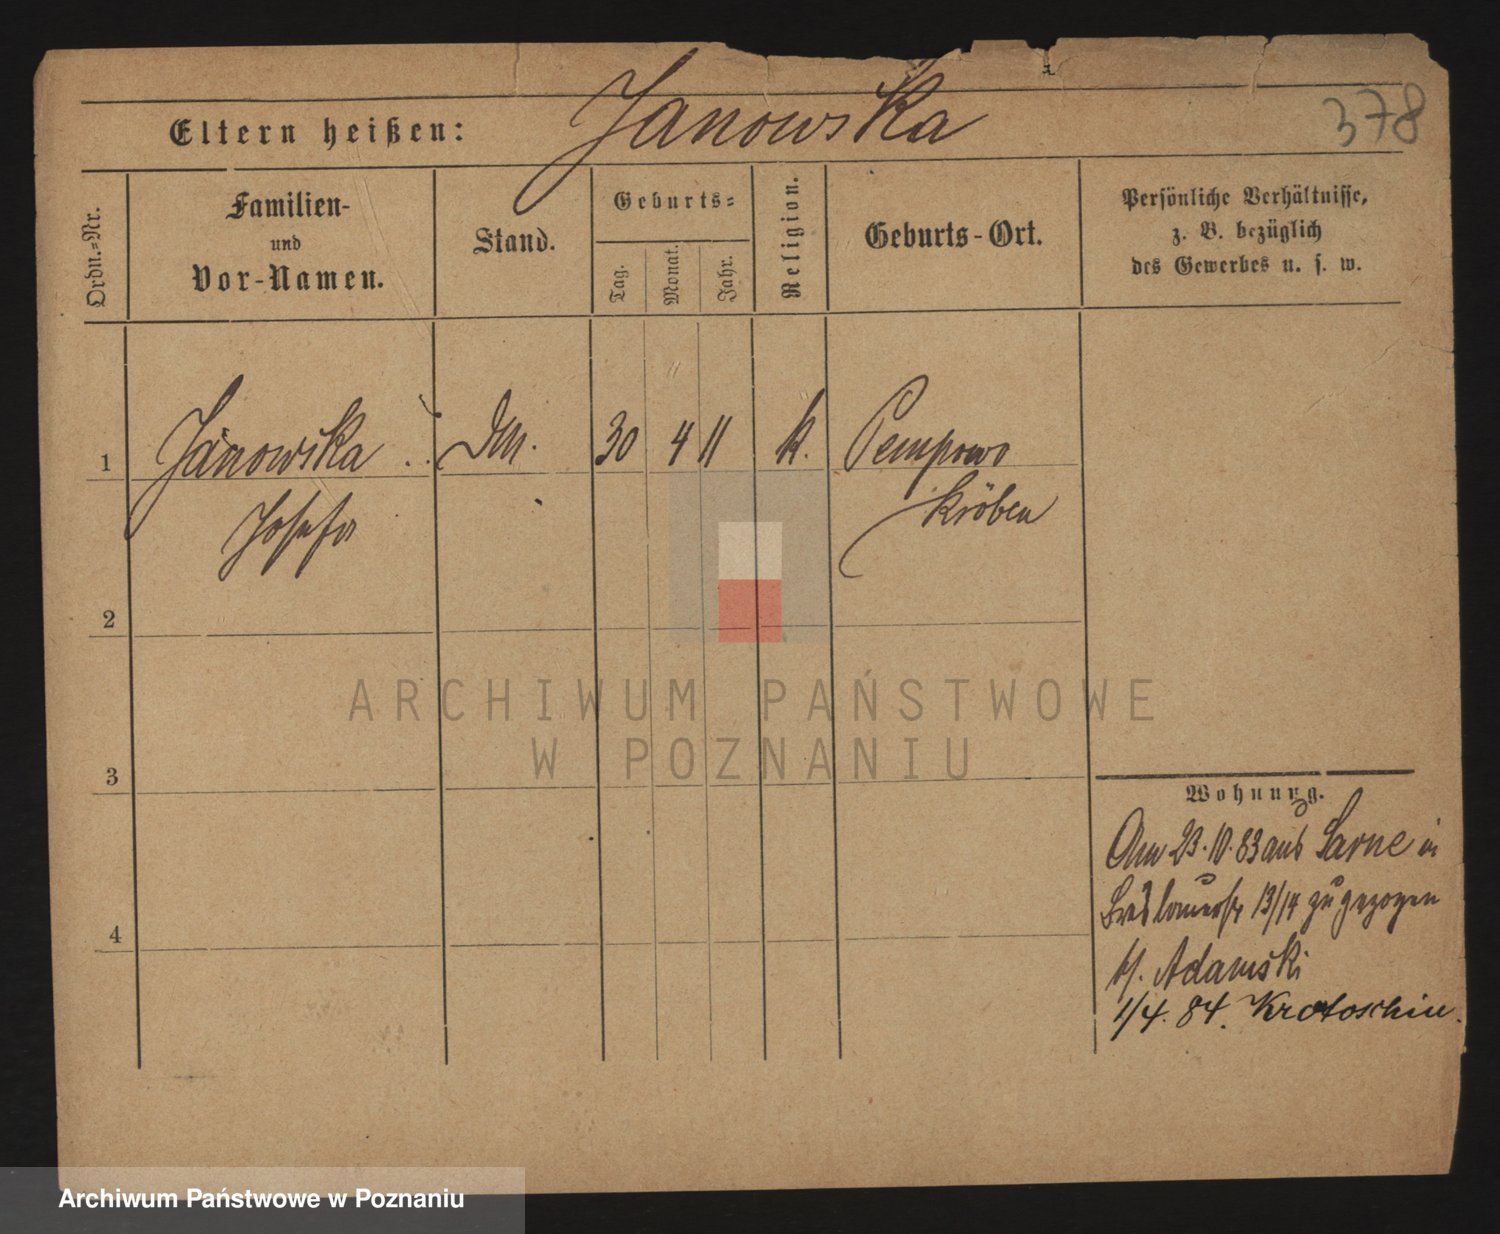 Janowska
378
Eltern heißen:
Ordn.=Nr.
Familien-
und
Vor-Namen.
Stand.
Geburts=
Tag.
Monat.
Jahr.
Religion.
Geburts-Ort.
Persönliche Verhältnisse,
z. B. bezüglich
des Gewerbes u. s. w.
1
Janowska
30 4
k.
Pempowo
Josefa
Kröben
2
3
4
Wohnung.
Am 23.10.83 aus Sarne in
13/14 zugezogen
b/. Adamski
1/4. 84. Krotoschin.
ARCHIWUM PAŃSTWOWE
W POZNANIU
Archiwum Państwowe w Poznaniu